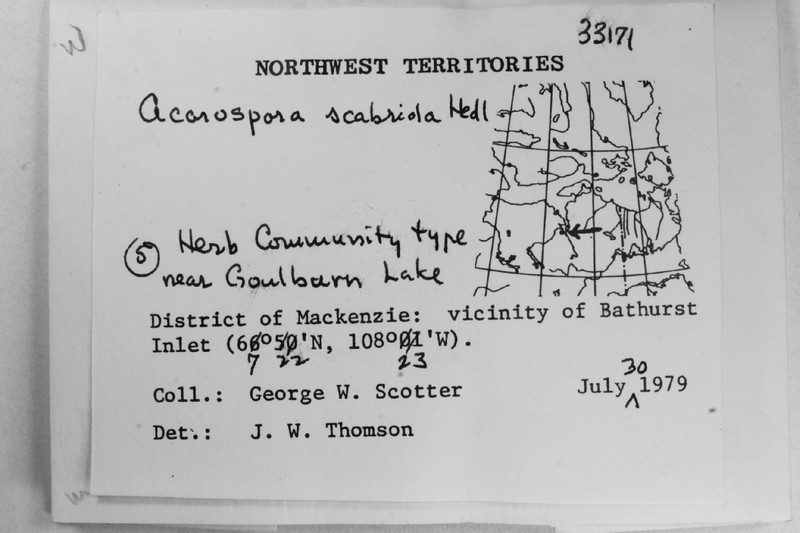 33171
NORTHWEST TERRITORIES
Acarospora scabrida Hedl
⑤ Herb Community type
near Goulburn Lake
District of Mackenzie: vicinity of Bathurst
Inlet (66°50'N, 108°01'W).
7 22 23
Coll.: George W. Scotter July 30 1979
Det.: J. W. Thomson